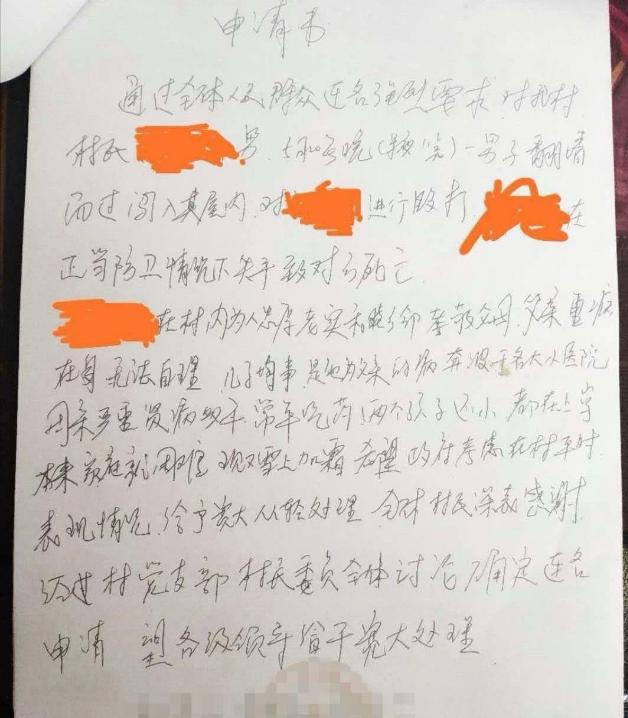 申请书
通过全体人民群众连名强烈要求 对我村
村民 男
而过闯入其屋内 对 进行殴打 在
正当防卫情况下失手致对方死亡
在村内为人忠厚老实和睦乡邻 孝敬父母 父亲重病
在身无法自理 儿子 是他为父亲的病奔波于各大小医院
母亲 常年吃药 两个孩子还小 都在上学
本来家庭就困难 现又雪上加霜 希望政府考虑在村平时
表现情况 给予宽大从轻处理 全体村民深表感谢
经过村党支部 村民委员全体讨论确定连名
申请 望各级领导给予宽大处理